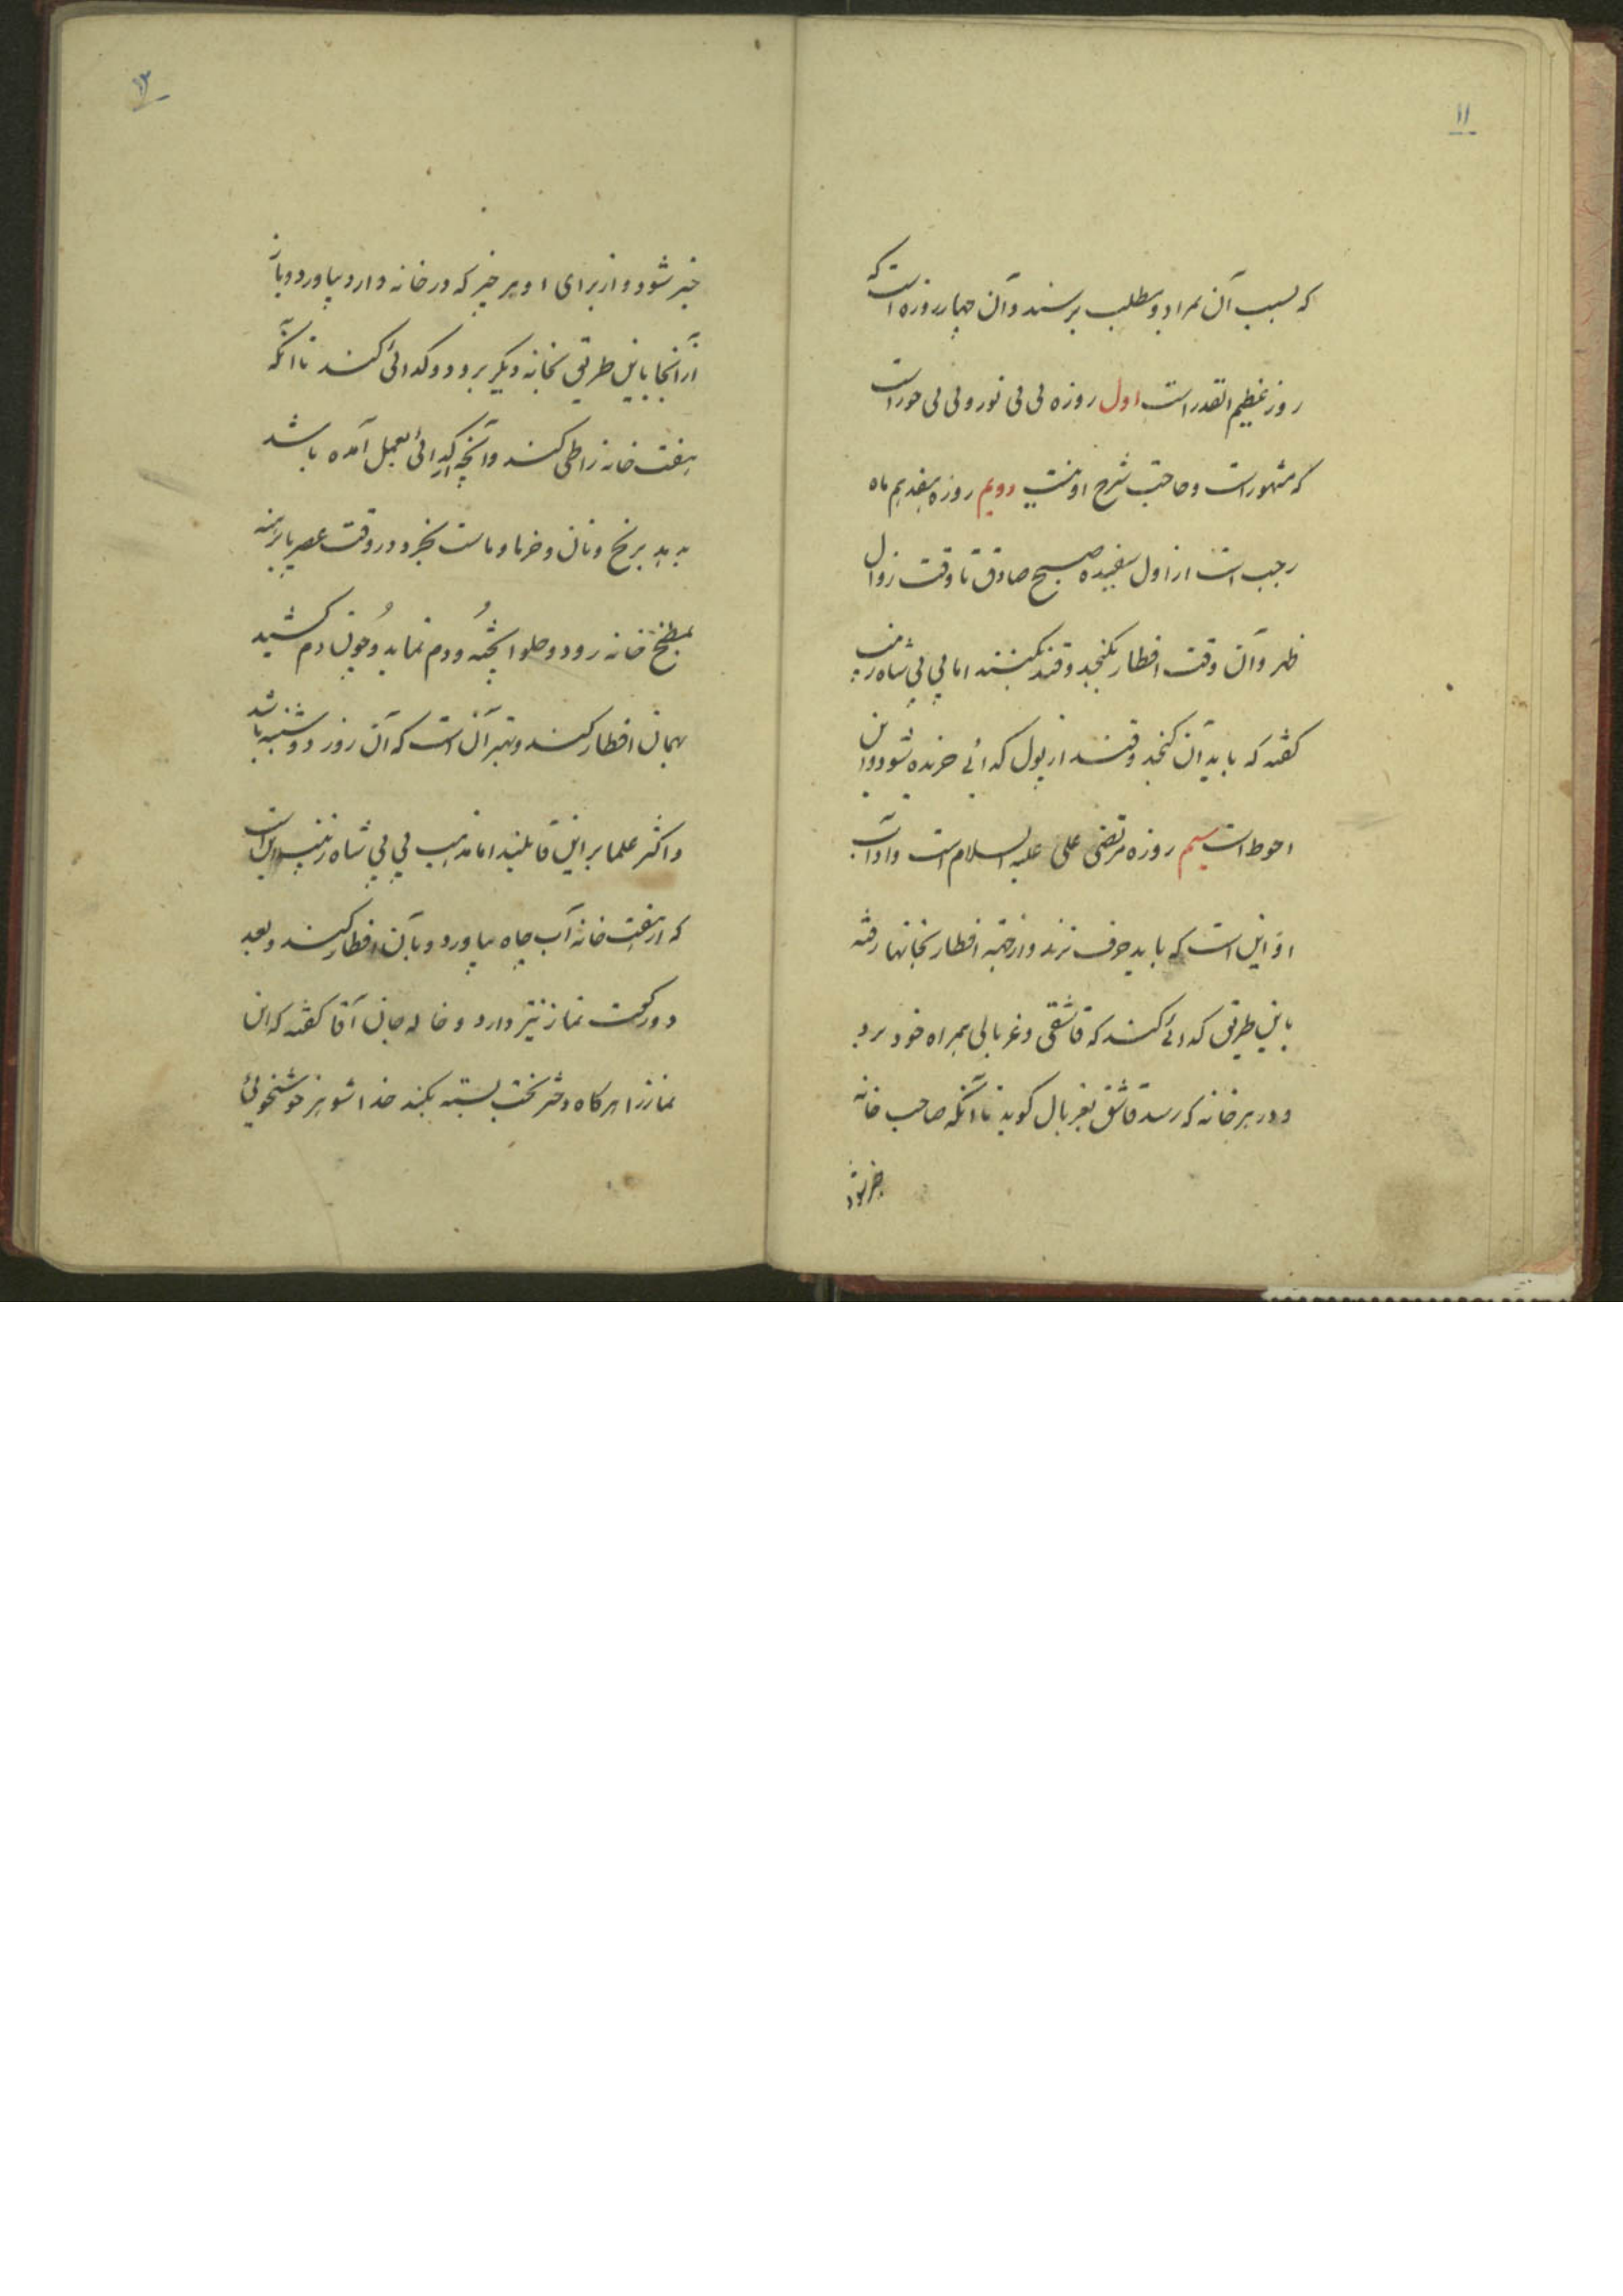 ۱۱
که بسبب آن بمراد و مطلب برسند و آن چهار روزه است که
روز عظیم القدر است اول روزه بی بی نور و بی بی حور است
که مشهور است و حاجت شرح او نیست دویم روزه هفدهم ماه
رجب است از اول سفیده صبح صادق تا وقت زوال
ظهر و آن وقت افطار بکنجد و قند بکنند اما بی بی شاه زینب
گفته که باید آن کنجد و قند از پول گدائی خریده شود و این
احوط است سیم روزه مرتضی علی علیه السلام است و آداب
او این است که باید حرف نزند و از جهة افطار بخانها رفته
باین طریق گدائی کند که قاشقی و غربالی همراه خود برد
و در هر خانه که رسد قاشق بغربال کوبد تا آنکه صاحب خانه
خبر شود
۱۲
خبر شود و از برای او هر چیز که در خانه دارد بیاورد و باز
از آنجا باین طریق بخانه دیگر برود و گدائی کند تا آنکه
هفت خانه را طی کند و آنچه از گدائی بعمل آمده باشد
بدهد برنج و نان و خرما و ماست بخرد و در وقت عصر پا برهنه
بمطبخ خانه رود و حلوا پخته و دم نماید و چون دم کشید
بهمان افطار کند و بهتر آن است که آن روز دوشنبه باشد
و اکثر علما بر این قایلند اما مذهب بی بی شاه زینب این است
که از هفت خانه آب چاه بیاورد و بآن افطار کند و بعد
دو رکعت نماز نیز دارد و خاله جان آقا گفته که این
نماز را هر گاه دختر بخت بسته بکند خدا شوهر خوشخوئی